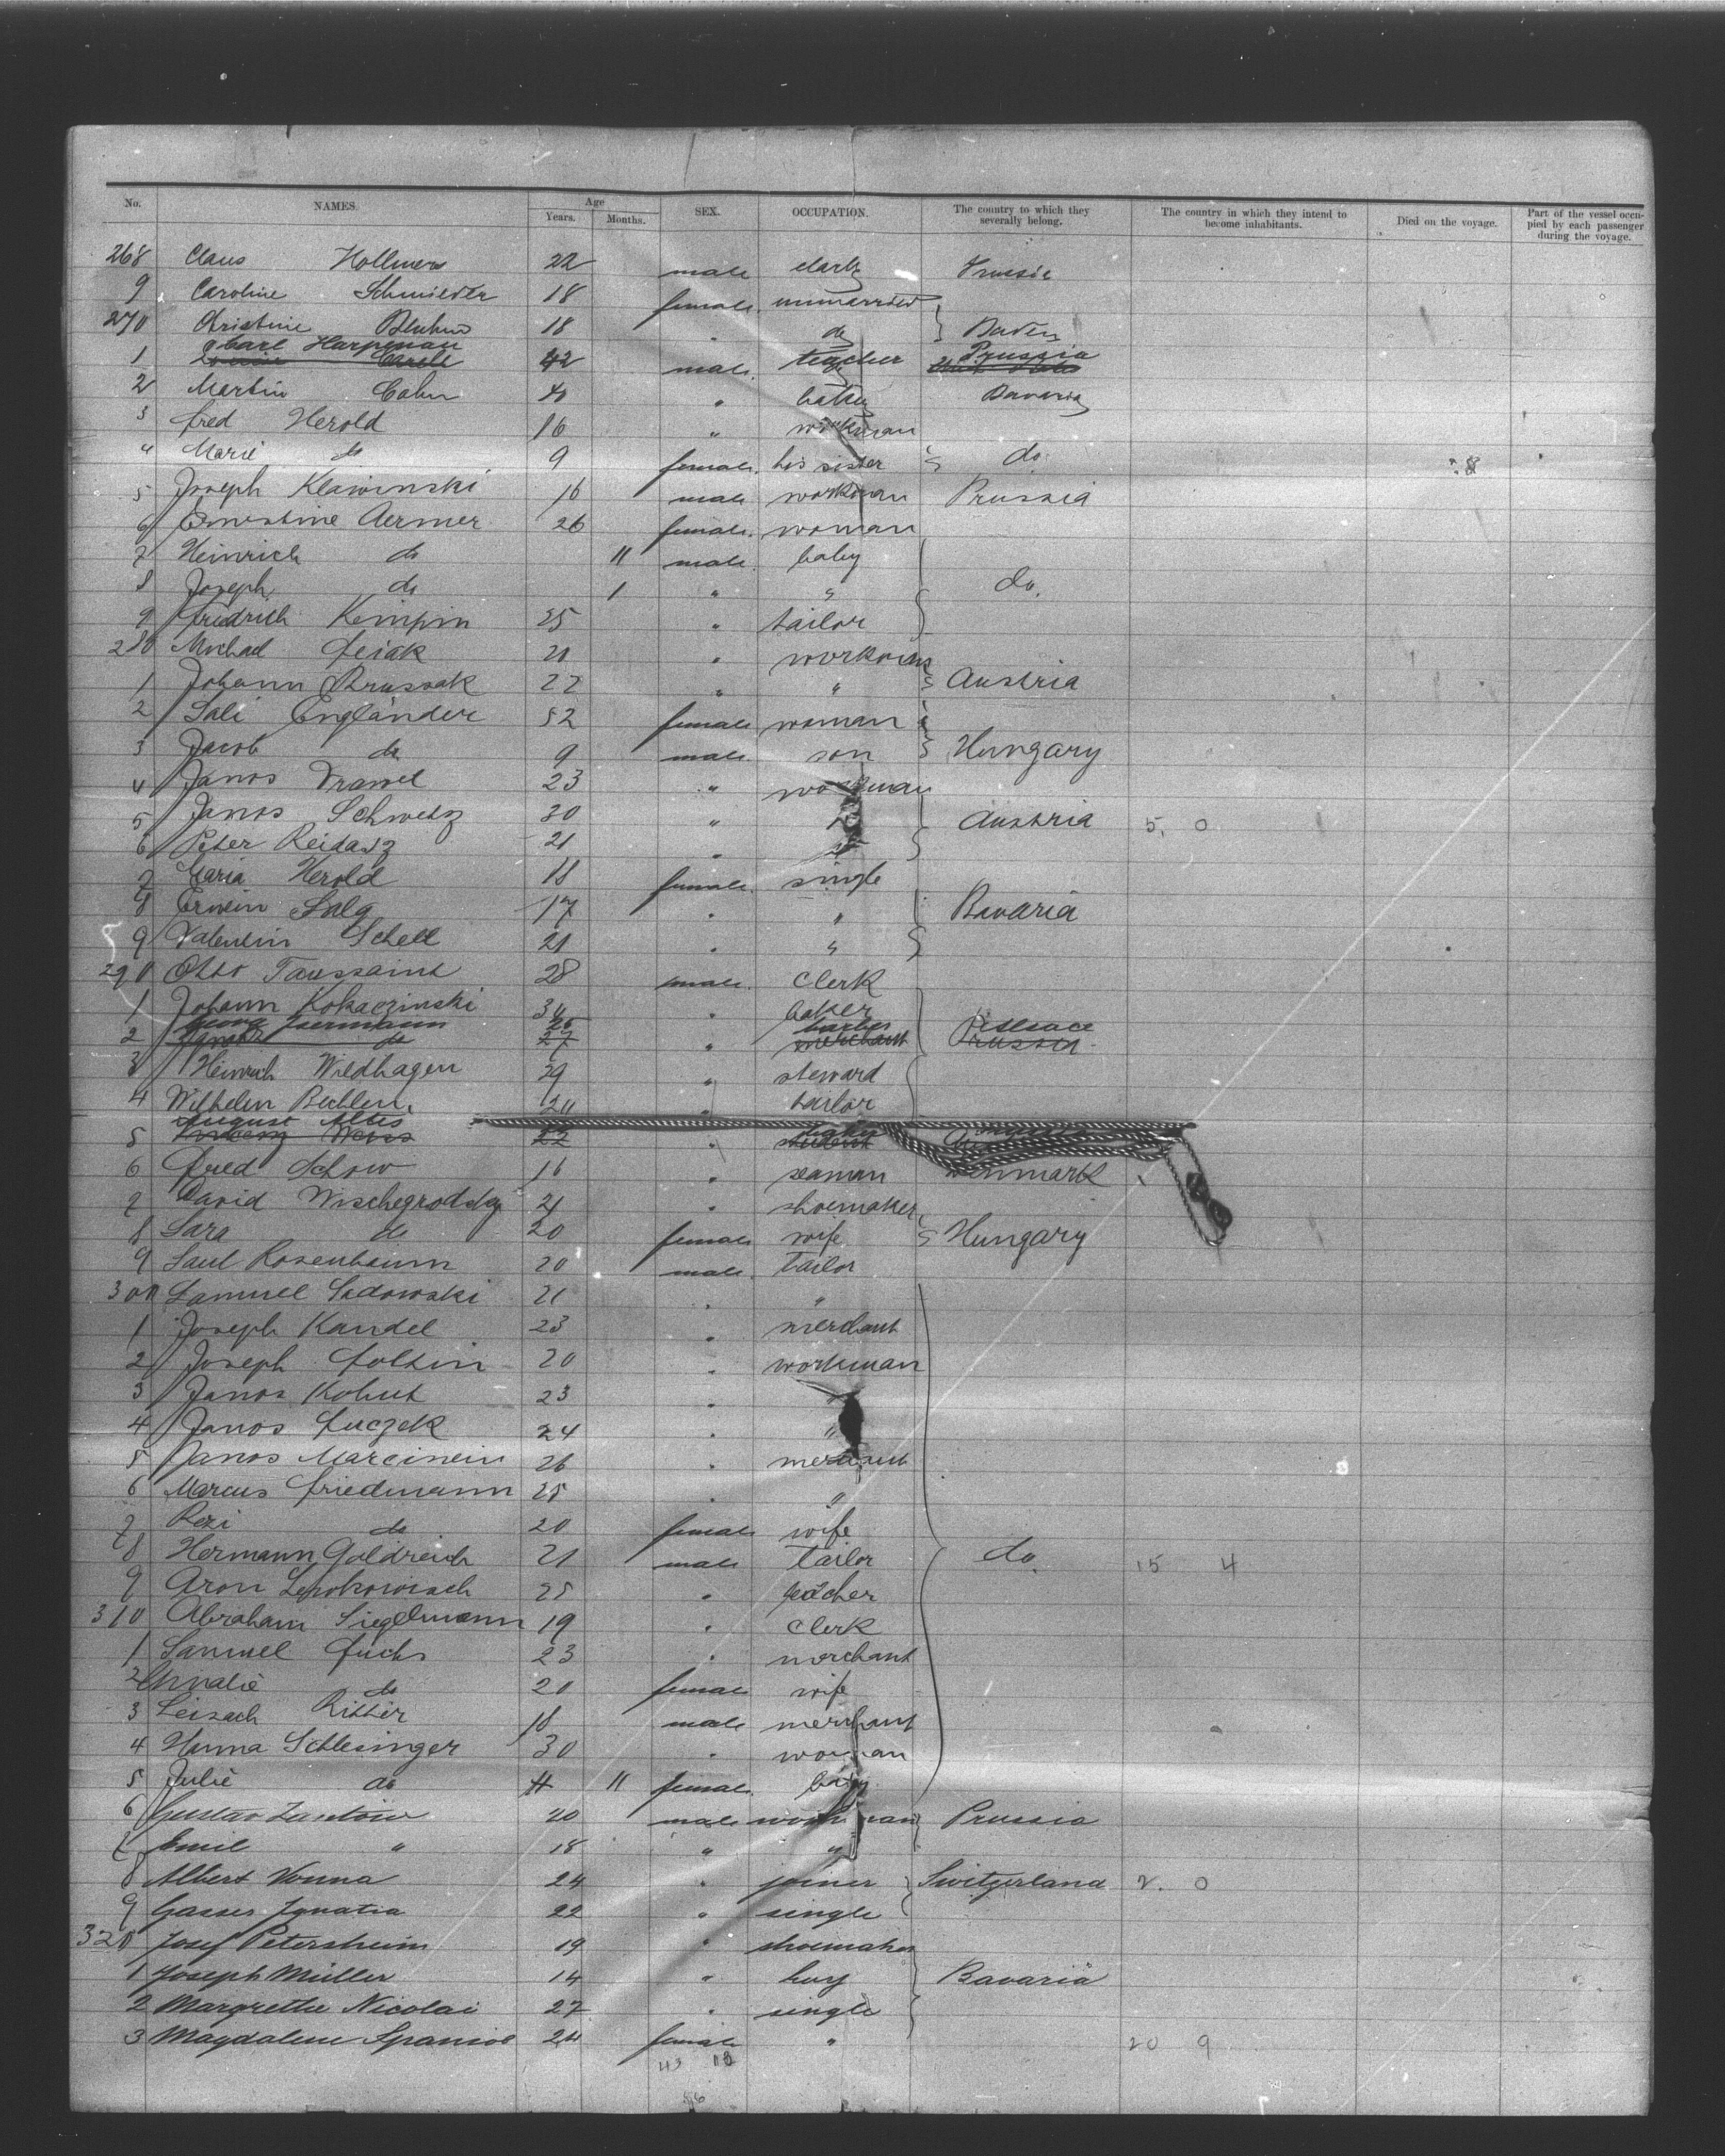 No. NAMES. Age Years. Months. SEX. OCCUPATION. The country to which they severally belong. The country in which they intend to become inhabitants. Died on the voyage. Part of the vessel occupied by each passenger during the voyage.
268 Claus Hollmers 22 male Prussia
9 Caroline Schmieder 18 female. unmarried
270 Christine 18 " do Baden
Carl Harpenau Prussia
1 42 male. teacher
2 Martin Cohn " Bavaria
3 Fred Herold 16 " workman
4 Marie do 9 female. his sister do.
5 Joseph Klawinski 16 male workman Prussia
6 Ernestine Aermer 26 female. woman
7 Heinrich do 11 male. baby
8 Joseph do 1 " " do.
9 Friedrich Kempin 35 " tailor
280 Michael 20 " workman
1 Johann Brussak 22 " " Austria
2 Sali Engländer 52 female woman
3 Jacob do 9 male. son Hungary
4 Janos 23 " workman
5 Janos Schwetz 30 " Austria 5. 0
6 Peter 21 "
7 Maria Herold 18 female. single
8 Erwein Salg 17 " " Bavaria
9 Valentin Schell 21 " "
290 Otto Toussaint 28 male. clerk
1 Johann Kokaczinski 34 " baker
Georg Isermann 26 barber Alsace
2 do 27 " merchant Prussia
3 Heinrich Wildhagen 29 " steward
4 Wilhelm 24 " tailor
August Altes
5 22 " student
6 Fred Schow 16 " seaman Denmark
7 David Wischegrodsky 21 " shoemaker
8 Sara do 20 female wife Hungary
9 Saul Rosenbaum 20 male. tailor
300 Samuel Sadowski 21 " "
1 Joseph Kandel 23 " merchant
2 Joseph Foltin 20 " workman
3 Janos Kohut 23 "
4 Janos 24 " "
5 Janos Marcinein 26 " merchant
6 Marcus Friedmann 25 " "
7 Rezi do 20 female wife
8 Hermann Goldreich 21 male tailor do. 15 4
9 Aron 25 "
310 Abraham Siegelmann 19 " clerk
1 Samuel Fuchs 23 " merchant
2 Amalie do 20 female wife
3 Leisach Ritter 18 male merchant
4 Hanna Schlesinger 30 " woman
5 Julie do 11 female. baby
6 Gustav 20 male workman Prussia
7 Emil " 18 " "
8 Albert Vonna 24 " joiner Switzerland 2. 0
9 Gasser Ignatia 22 " single
320 Josef Petersheim 19 " shoemaker
1 Joseph Müller 14 " boy Bavaria
2 Margrethe Nicolai 27 " single
3 Magdalene Spaniol 24 female " 20 9
43 13
56